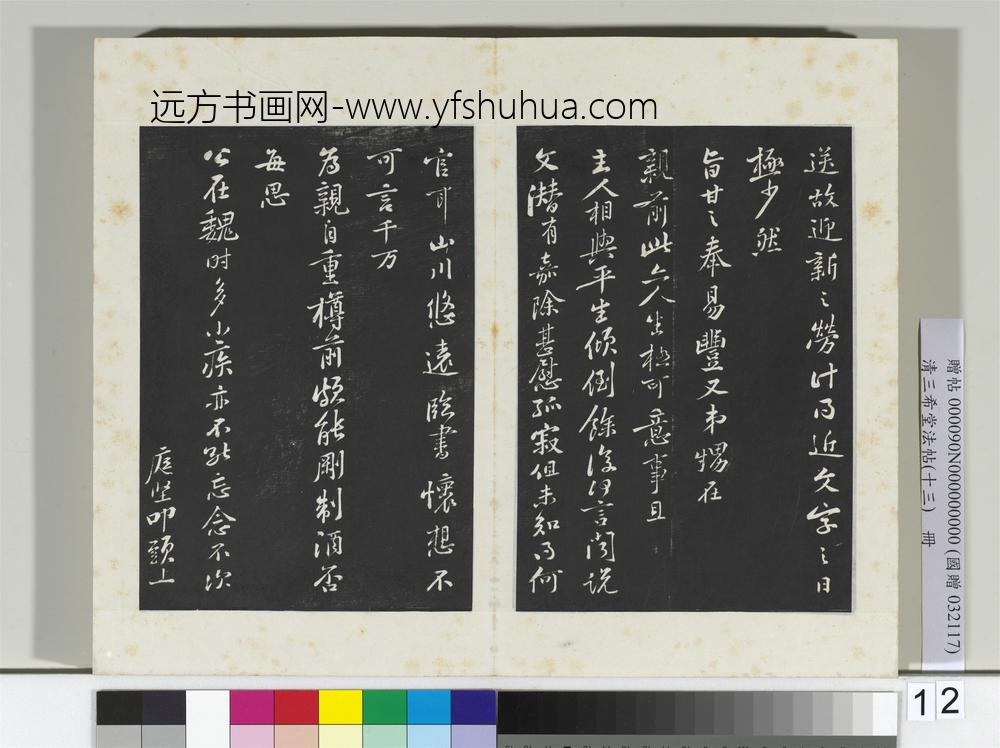 远方书画网-www.yfshuhua.com
送故迎新〻勞计得近文字〻日
極少然
旨甘〻奉易豐又弟甥在
親前此六人出極可意事且
主人相與平生傾倒餘復何言聞说
文潜有嘉除甚慰孤寂但未知得何
官耳山川悠遠臨書懷想不
可言千万
为親自重樽前頗能剛制酒否
每思
公在魏时多小疾亦不能忘念不次
庭坚叩頭上
贈帖 000090N000000000 (國贈 032117)
清三希堂法帖(十三) 冊
12